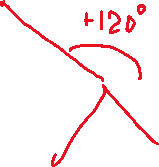 +120°